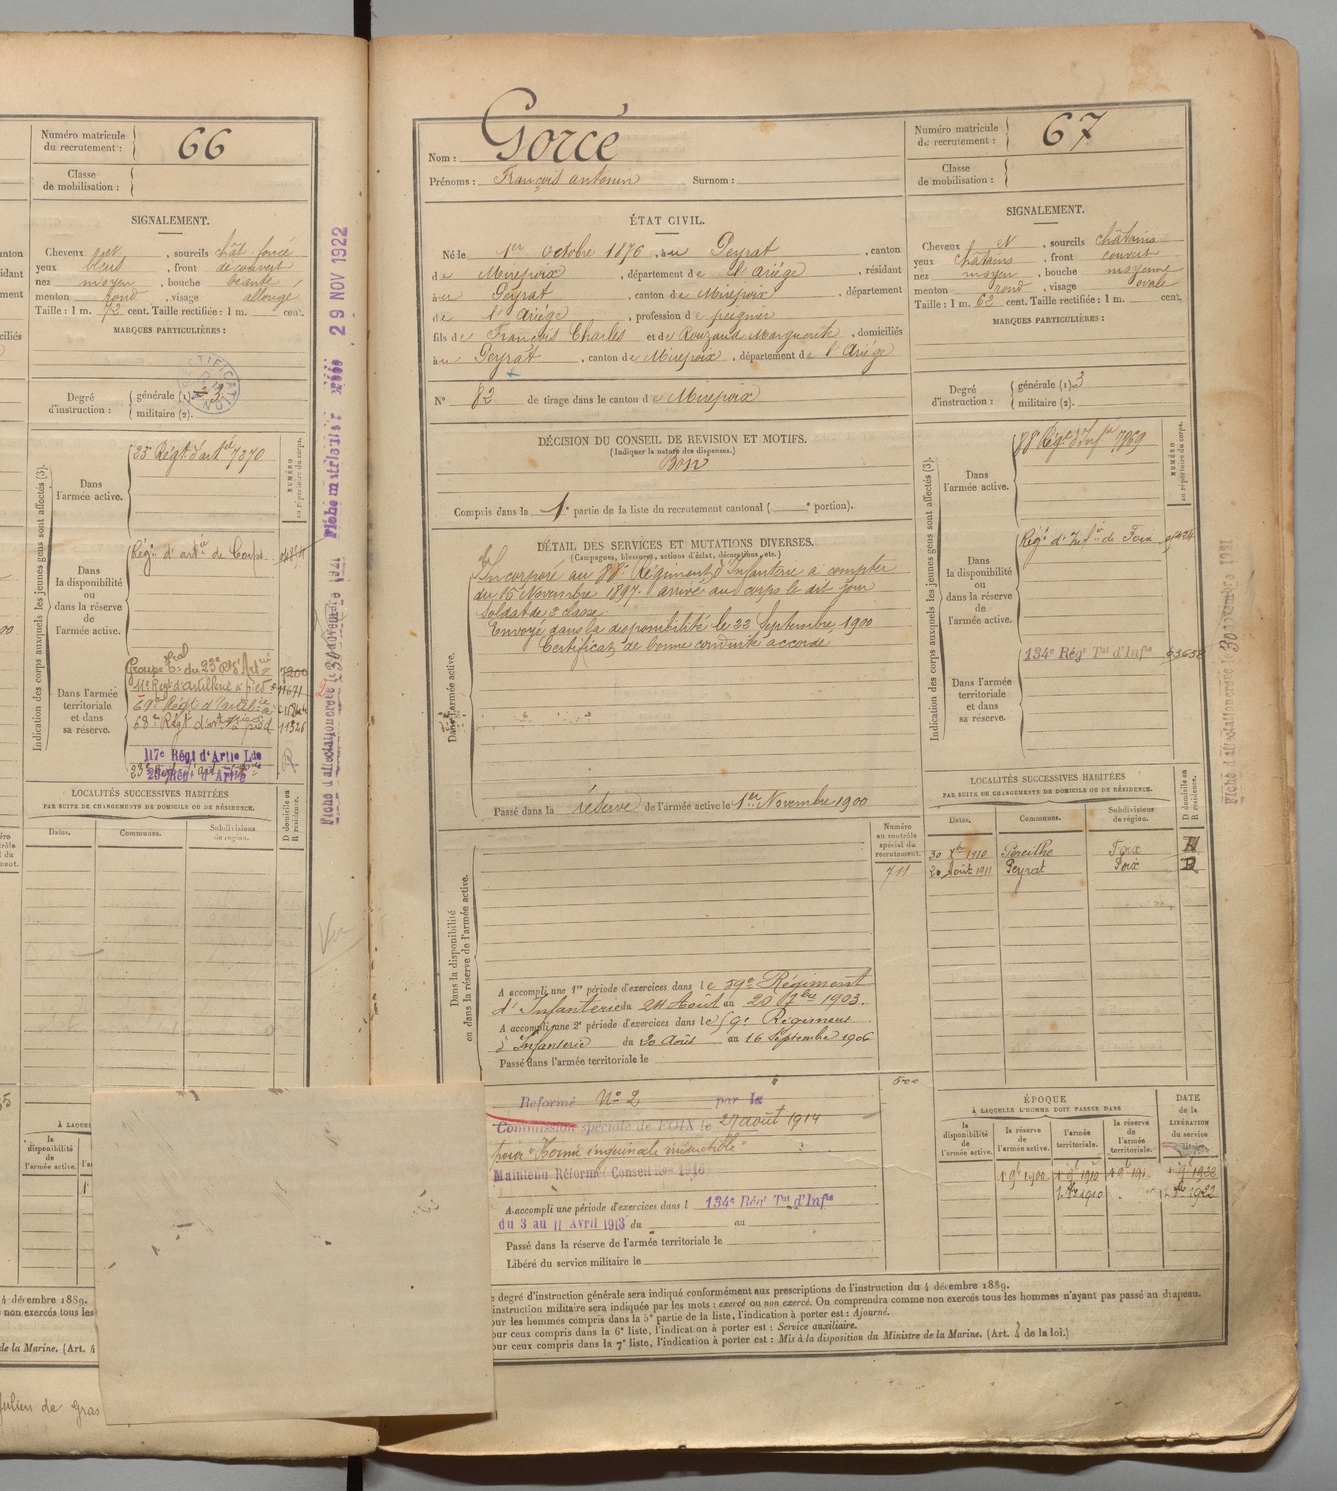 Numéro matricule
du recrutement : 66
Classe
de mobilisation :
SIGNALEMENT.
Cheveux et , sourcils chât. foncé
yeux bleus , front découvert
nez moyen , bouche béante
menton rond , visage allongé
Taille : 1 m. 72 cent. Taille rectifiée : 1 m. cent.
MARQUES PARTICULIÈRES :
Degré
d'instruction :
générale (1). 3
militaire (2).
RECTIFICATION
Indication des corps auxquels les jeunes gens sont affectés (3).
NUMÉRO
au répertoire du corps.
Dans
l'armée active.
23e Régt d'artie 7270
Dans
la disponibilité
ou
dans la réserve
de
l'armée active.
Régt d'artie de Corps
Dans l'armée
territoriale
et dans
sa réserve.
Groupe du 23e d'Artie 7200
11e Régt d'artillerie à pied 11671
68e Régt d'artie à pied 11326
117e Régt d'Artie Lde
23e Régt d'Artie
29 NOV 1922
Fiche matricule
LOCALITÉS SUCCESSIVES HABITÉES
PAR SUITE DE CHANGEMENTS DE DOMICILE OU DE RÉSIDENCE.
D domicile ou
R résidence.
Dates.
Communes.
Subdivisions
de région.
Nom : Gorcé
Prénoms : François antonin Surnom :
Numéro matricule
du recrutement : 67
Classe
de mobilisation :
ÉTAT CIVIL.
Né le 1er octobre 1876 , à Peyrat , canton
de Mirepoix , département de l'Ariége , résidant
à Peyrat , canton de Mirepoix , département
de l'Ariége , profession de peigneur
fils de François Charles et de Rouzaud Marguerite , domiciliés
à Peyrat , canton de Mirepoix , département de l'Ariége
N° 82 de tirage dans le canton de Mirepoix
DÉCISION DU CONSEIL DE REVISION ET MOTIFS.
(Indiquer la nature des dispenses.)
Bon
Compris dans la 1e partie de la liste du recrutement cantonal ( e portion).
DÉTAIL DES SERVICES ET MUTATIONS DIVERSES.
(Campagnes, blessures, actions d'éclat, décorations, etc.)
Dans l'armée active.
Incorporé au 88e Régiment d'Infanterie à compter
du 15 Novembre 1897. arrivé au corps le dit jour
soldat de 2e classe.
Envoyé dans la disponibilité le 22 Septembre 1900
Certificat de bonne conduite accordé
Passé dans la réserve de l'armée active le 1er Novembre 1900
Numéro
au contrôle
spécial du
recrutement.
711
Dans la disponibilité
ou dans la réserve de l'armée active.
A accompli une 1re période d'exercices dans le 59e Régiment
d'Infanterie du 24 Août au 20 7bre 1903.
A accompli une 2e période d'exercices dans le 59e Régiment
d'Infanterie du 20 Août au 16 Septembre 1906
Passé dans l'armée territoriale le
500
Reformé N° 2 par la
Commission spéciale de FOIX le 27 août 1914
pour "Hernie inguinale irréductible"
Maintenu Réformé Conseil Ron 1916
A accompli une période d'exercices dans l 134e Régt Tal d'Infie
du 3 au 11 Avril 1913 du au
Passé dans la réserve de l'armée territoriale le
Libéré du service militaire le
SIGNALEMENT.
Cheveux et , sourcils châtains
yeux châtains , front couvert
nez moyen , bouche moyenne
menton rond , visage ovale
Taille : 1 m. 62 cent. Taille rectifiée : 1 m. cent.
MARQUES PARTICULIÈRES :
Degré
d'instruction :
générale (1). 3
militaire (2).
Indication des corps auxquels les jeunes gens sont affectés (3).
NUMÉRO
au répertoire du corps.
Dans
l'armée active.
88e Régt d'Infie 7969
Dans
la disponibilité
ou
dans la réserve
de
l'armée active.
Régt d'Infie de Foix
Dans l'armée
territoriale
et dans
sa réserve.
134e Régt Tal d'Infie
LOCALITÉS SUCCESSIVES HABITÉES
PAR SUITE DE CHANGEMENTS DE DOMICILE OU DE RÉSIDENCE.
D domicile ou
R résidence.
Dates.
Communes.
Subdivisions
de région.
30 Xbre 1910 Foix
20 Août 1911 Peyrat Foix D
ÉPOQUE
À LAQUELLE L'HOMME DOIT PASSER DANS
DATE
de la
LIBÉRATION
du service
militaire.
la
disponibilité
de
l'armée active.
la
réserve
de
l'armée active.
l'armée
territoriale.
la
réserve
de l'armée
territoriale.
1 9e 1900 1 9e 1910
1 Xbre 1910
degré d'instruction générale sera indiqué conformément aux prescriptions de l'instruction du 4 décembre 1889.
instruction militaire sera indiquée par les mots : exercé ou non exercé. On comprendra comme non exercés tous les hommes n'ayant pas passé au drapeau.
our les hommes compris dans la 5e partie de la liste, l'indication à porter est : Ajourné.
our ceux compris dans la 6e liste, l'indication à porter est : Service auxiliaire.
our ceux compris dans la 7e liste, l'indication à porter est : Mis à la disposition du Ministre de la Marine. (Art. 4 de la loi.)
4 décembre 1889.
non exercés tous les
de la Marine. (Art. 4
Julien de gras